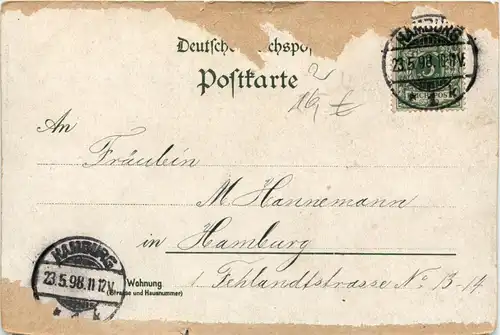 Deutsche Reichspo
Postkarte
HAMBURG
23.5.98.11-12V.
* 1 k
REICHSPOST
An
Fräulein
M Hannemann
in Hamburg
Wohnung
(Strasse und Hausnummer)
1. Fehlandtstrasse No 13-14
HAMBURG
23.5.98.11-12V.
* 1 k